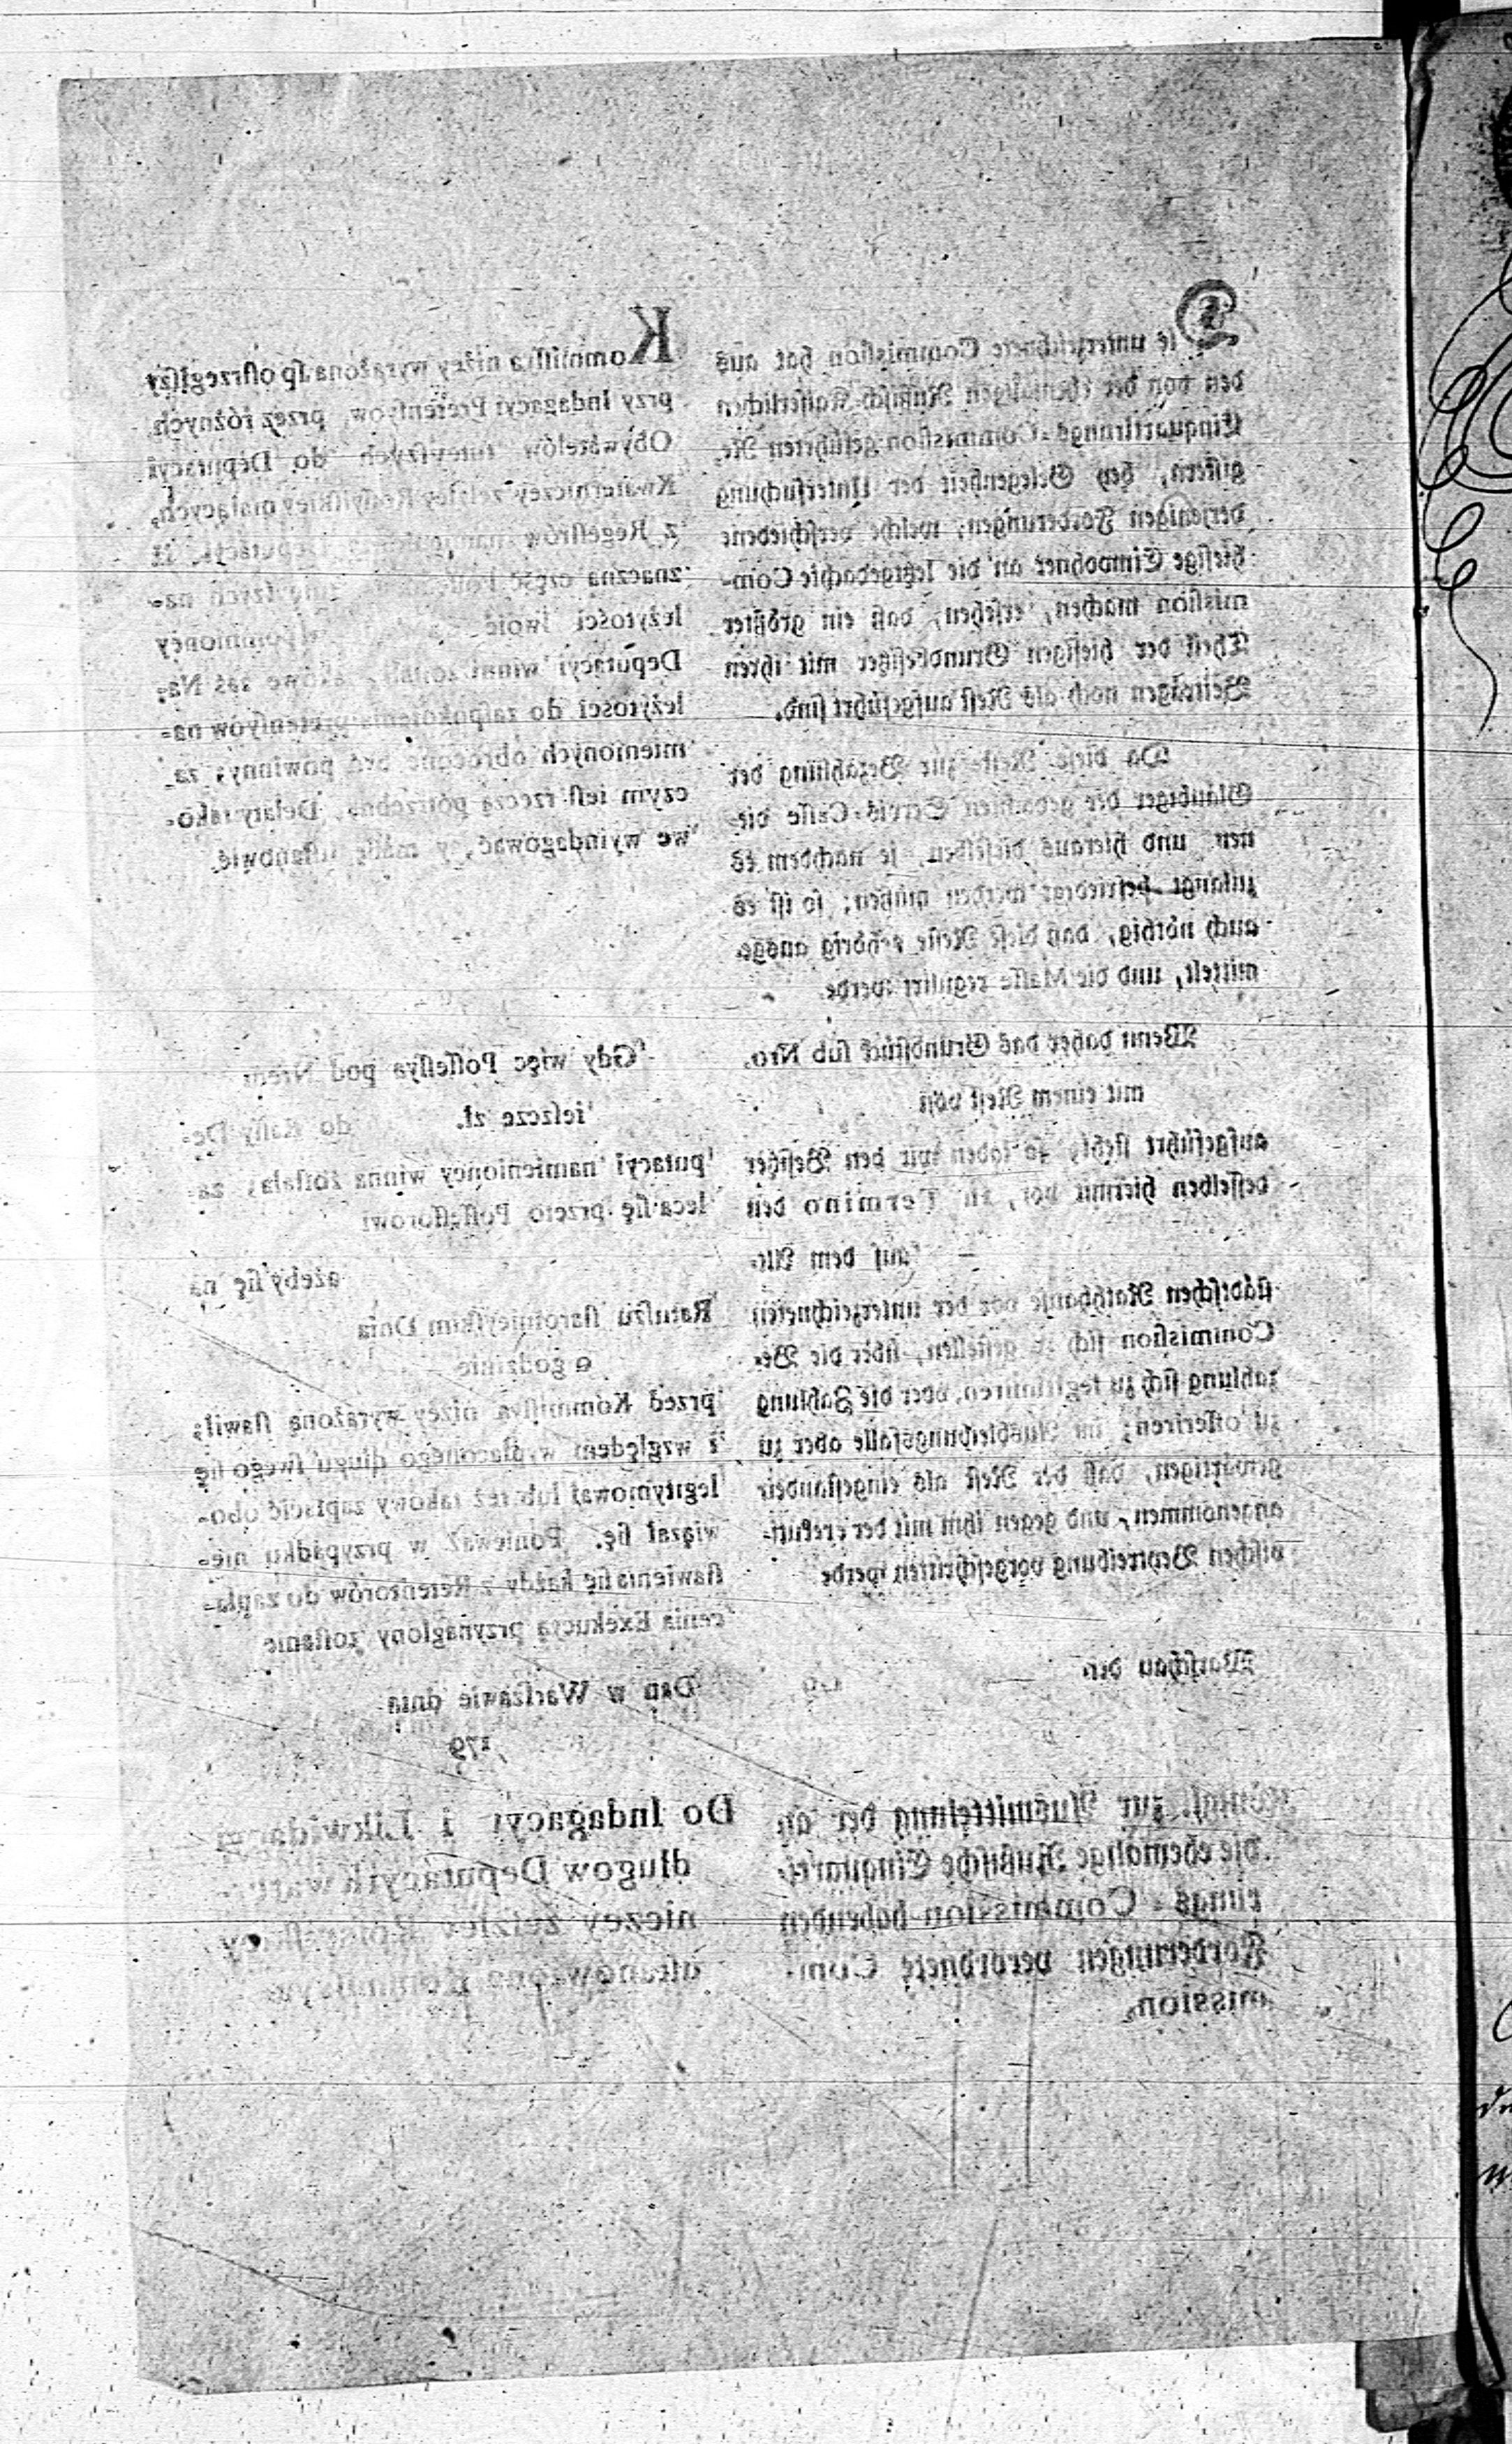 Die unterzeichnete Commission hat aus
den von der ehemaligen Rußisch-Kaiserlichen
Einquartirungs-Commission geführten Re-
gistern, bey Gelegenheit der Untersuchung
derjenigen Forderungen, welche verschiedene
hiesige Einwohner an die letztgedachte Com-
mission machen, ersehen, daß ein größter
Theil der hiesigen Grundbesitzer mit ihren
Beiträgen noch als Rest aufgeführt sind.
Da diese Reste zur Bezahlung der
Gläubiger der gedachten Servis-Casse die-
nen und hieraus dieselben, je nachdem es
zulangt befriediget werden müßen; so ist es
auch nöthig, daß diese Reste gehörig ausge-
mittelt, und die Masse regulirt werde.
Wenn daher das Grundstück sub Nro.
mit einem Rest von
aufgeführt steht, so laden wir den Besitzer
desselben hiermit vor, in Termino den
auf dem Alt-
städtschen Rathhause vor der unterzeichneten
Commission sich zu gestellen, über die Be-
zahlung sich zu legitimiren, oder die Zahlung
zu offeriren; im Ausbleibungsfalle aber zu
gewärtigen, daß der Rest als eingestanden
angenommen, und gegen ihm mit der executi-
vischen Beytreibung vorgeschritten werde
Warschau den
zur Ausmittelung der an
die ehemalige Rußische Einquarti-
rungs-Commission habenden
Forderungen verordnete Com-
mission.
Kommissia niżey wyrażona spostrzegłszy
przy Indagacyi Pretensyow, przez różnych
Obywatelów tuteyszych do Deputacyi
Kwaterniczey zeszłey Rossyiskiey maiących,
z Regestrów Deputacyi, iż
znaczna część tuteyszych na-
leżytości swoie
Deputacyi winni zostali, takowe zaś Na-
leżytości do zaspokoienia pretensyów na-
mienionych obrócone być powinny; za-
czym iest rzeczą potrzebną, Delaty tako-
we wyindagować, y massę ustanowić
Gdy więc Possessya pod Nrem
ieszcze zł. do Kassy De-
putacyi namienioney winna została; za-
leca się przeto Possessorowi
ażeby się na
Ratuszu staromieyskim Dnia
o godzinie
przed Kommissyą niżey wyrażoną stawił;
i względem wypłaconego długu swego się
legitymował lub też takowy zapłacić obo-
wiązał się. Ponieważ w przypadku nie-
stawienia się każdy z Retentorów do zapła-
cenia Exekucyą przynaglony zostanie
Dan w Warszawie dnia
179
Do Indagacyi i Likwidacyi
długow Deputacyi kwater-
niczey zeszley Rossyiskiey
ustanowiona Kommissya